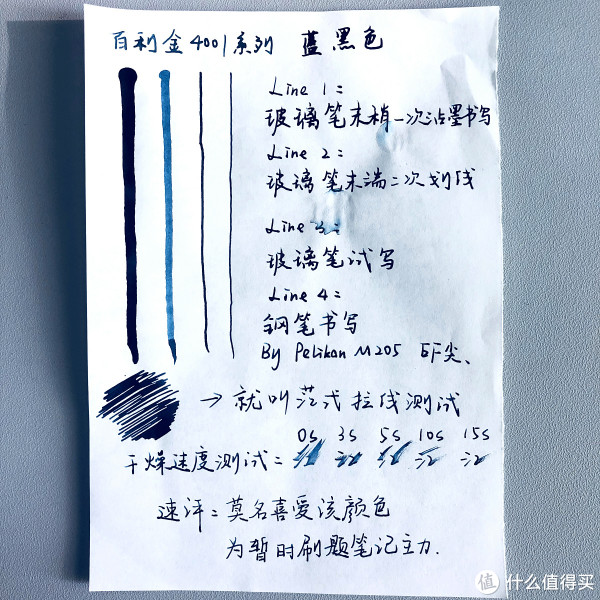 百利金4001系列 蓝黑色
Line 1:
玻璃笔末梢一次沾墨书写
Line 2:
玻璃笔末端二次划线
Line 3:
玻璃笔试写
Line 4:
钢笔书写
By Pelikan M205 EF尖、
→ 就叫范式拉线测试
0s 3s 5s 10s 15s
干燥速度测试:
速评:莫名喜爱该颜色
为暂时刷题笔记主力.
值 什么值得买